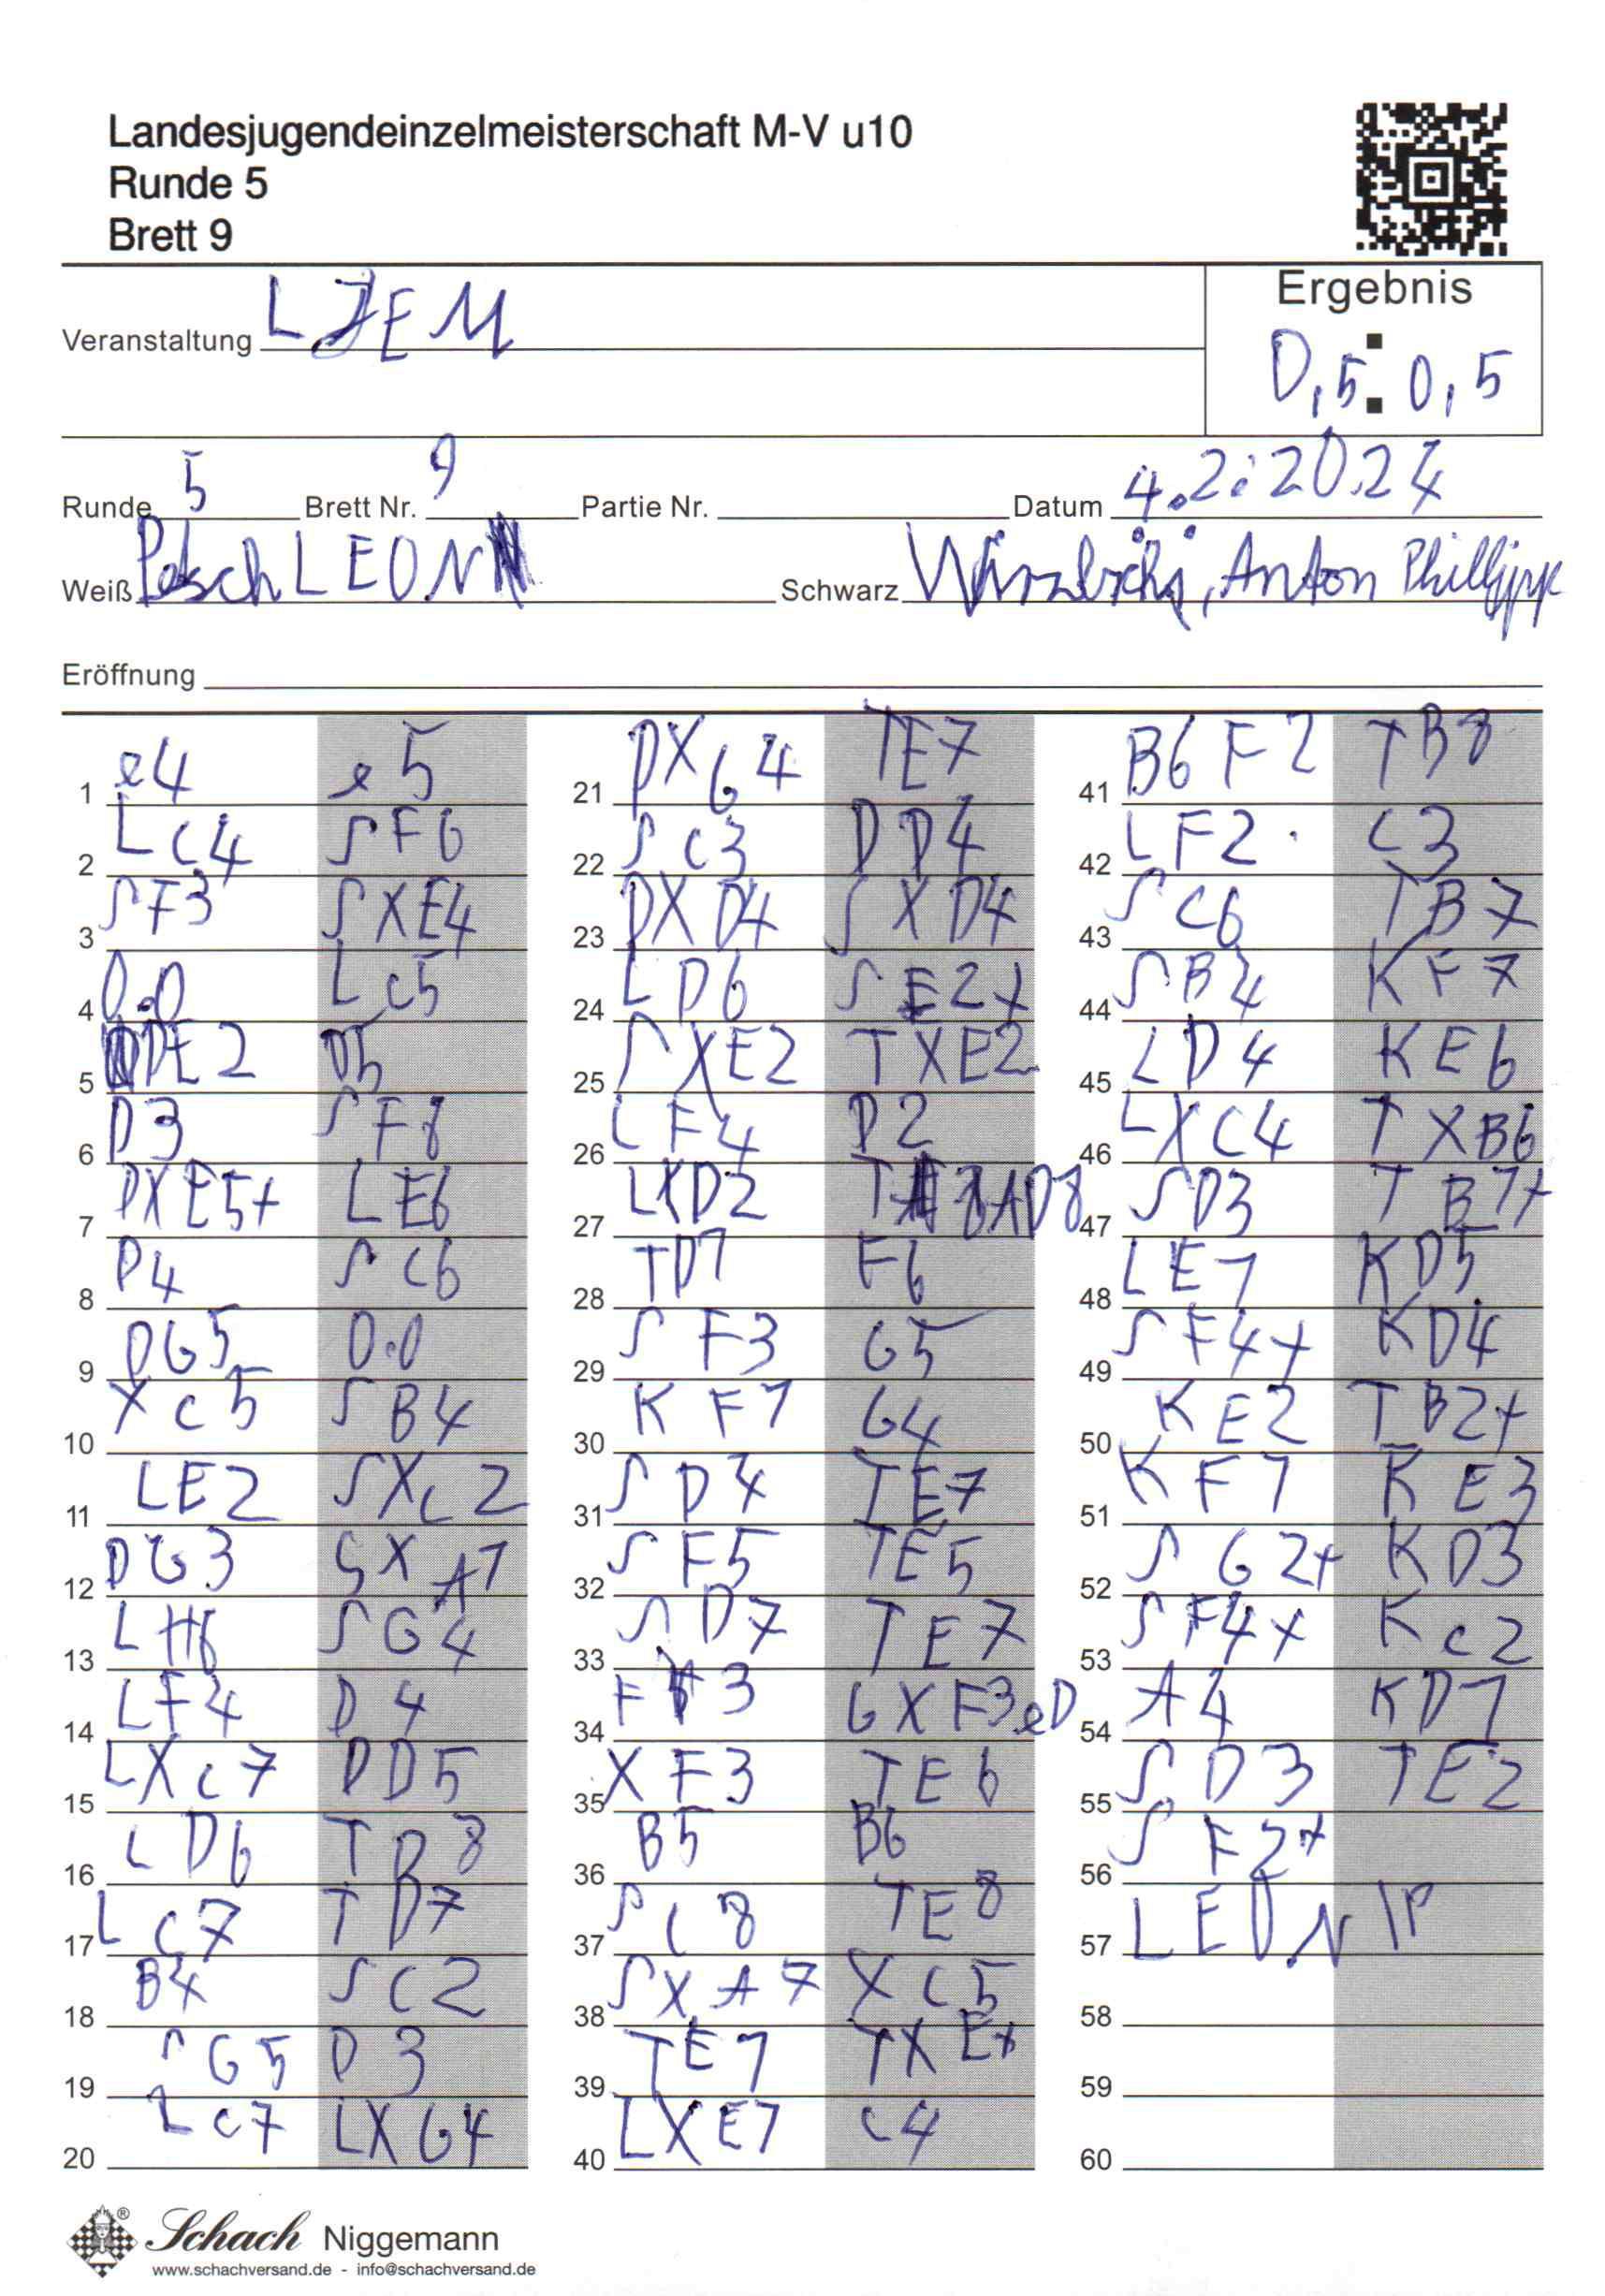 Landesjugendeinzelmeisterschaft M-V u10
Runde 5
Brett 9
Veranstaltung LJEM
Ergebnis
0,5:0,5
Runde 5 Brett Nr. 9 Partie Nr. Datum 4.2.2024
Weiß LEON Schwarz Anton
Eröffnung
1 e4 e5
2 Lc4 SF6
3 SF3 SXE4
4 0.0 Lc5
5 DE2 D5
6 D3 SF8
7 DXE5+ LE6
8 D4 SC6
9 DG5 0.0
10 Xc5 SB4
11 LE2 SXc2
12 DG3 SXA1
13 LH6 SG4
14 LF4 D4
15 LXc7 DD5
16 LD6 TD8
17 Lc7 TD7
18 B4 SC2
19 SG5 D3
20 Lc7 LXG4
21 DXG4 TE7
22 Sc3 DD4
23 DXD4 SXD4
24 LD6 SE2+
25 SXE2 TXE2
26 LF4 D2
27 LXD2 TAD8
28 TD1 F6
29 SF3 G5
30 KF1 G4
31 SD4 TE7
32 SF5 TE5
33 SD7 TE7
34 F3 GXF3eD
35 XF3 TE6
36 B5 B6
37 SC8 TE8
38 SXA7 XC5
39 TE1 TXE+
40 LXE1 c4
41 B6 F2 TB8
42 LF2 c3
43 SC6 TB7
44 SB4 KF7
45 LD4 KE6
46 LXC4 TXB6
47 SD3 TB1+
48 LE1 KD5
49 SF4+ KD4
50 KE2 TB2+
51 KF1 KE3
52 SG2+ KD3
53 SF4+ Kc2
54 A4 KD1
55 SD3 TE2
56 SF2+
57 LEON IP
58
59
60
Schach Niggemann
www.schachversand.de - info@schachversand.de